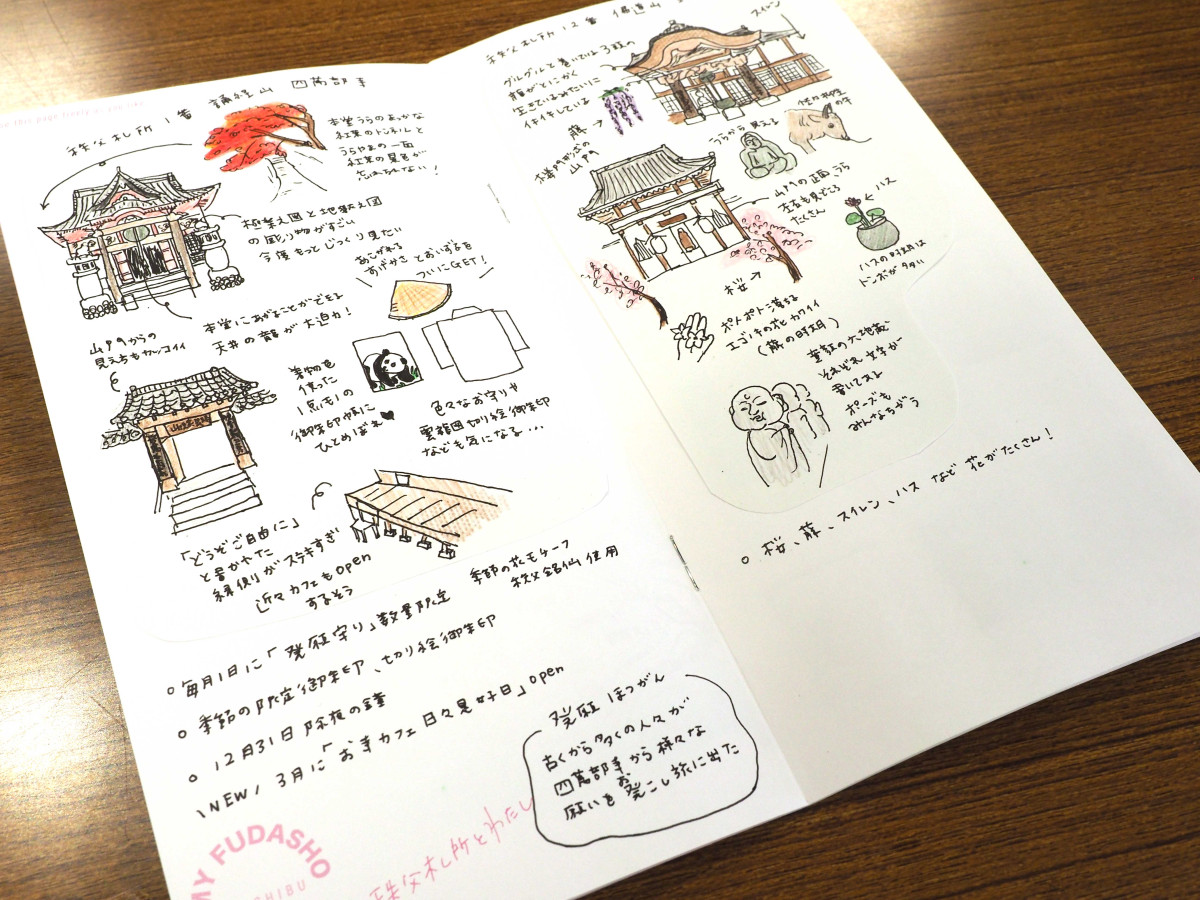 秩父札所 1番 誦経山 四萬部寺
本堂うらのあざやかな
紅葉のトンネルと
うらやまの一面
紅葉の景色が
忘れられない!
極楽之図と地獄之図
の彫り物がすごい
今度もっとじっくり見たい
あこがれる
すげがさ とおいずるを
ついにGET!
本堂にあがることができる
天井の龍が大迫力!
山門からの
見え方もカッコイイ
着物を
使った
1点モノの
御朱印帳に
ひとめぼれ
色々なお守りや
雲龍図切り絵御朱印
なども気になる…
「どうぞご自由に」
と書かれた
縁側がステキすぎ
近々カフェもopen
するそう
季節の花モチーフ
秩父銘仙使用
毎月1日に「発願守り」数量限定
季節の限定御朱印、切り絵御朱印
12月31日 除夜の鐘
\NEW/ 3月に「お寺カフェ 日々是好日」open
発願 ほつがん
古くから多くの人々が
四萬部寺から様々な
願いを発こし旅に出た
MY FUDASHO
秩父札所とわたし
秩父札所 12番 仏道山
スイレン
グルグルと巻いてる3頭の
顔がとにかく
生きてるみたいに
イキイキしている
藤
うらから見える
の牛
楼門形式の
山門
山門の正面、うら
左右も見どころ
たくさん
ハス
ハスの時期は
トンボが多い
桜
ポトポト落ちる
エゴノキの花カワイイ
(藤の時期)
童顔の六地蔵
それぞれ文字が
書いてある
ポーズも
みんなちがう
桜、藤、スイレン、ハス など 花がたくさん!